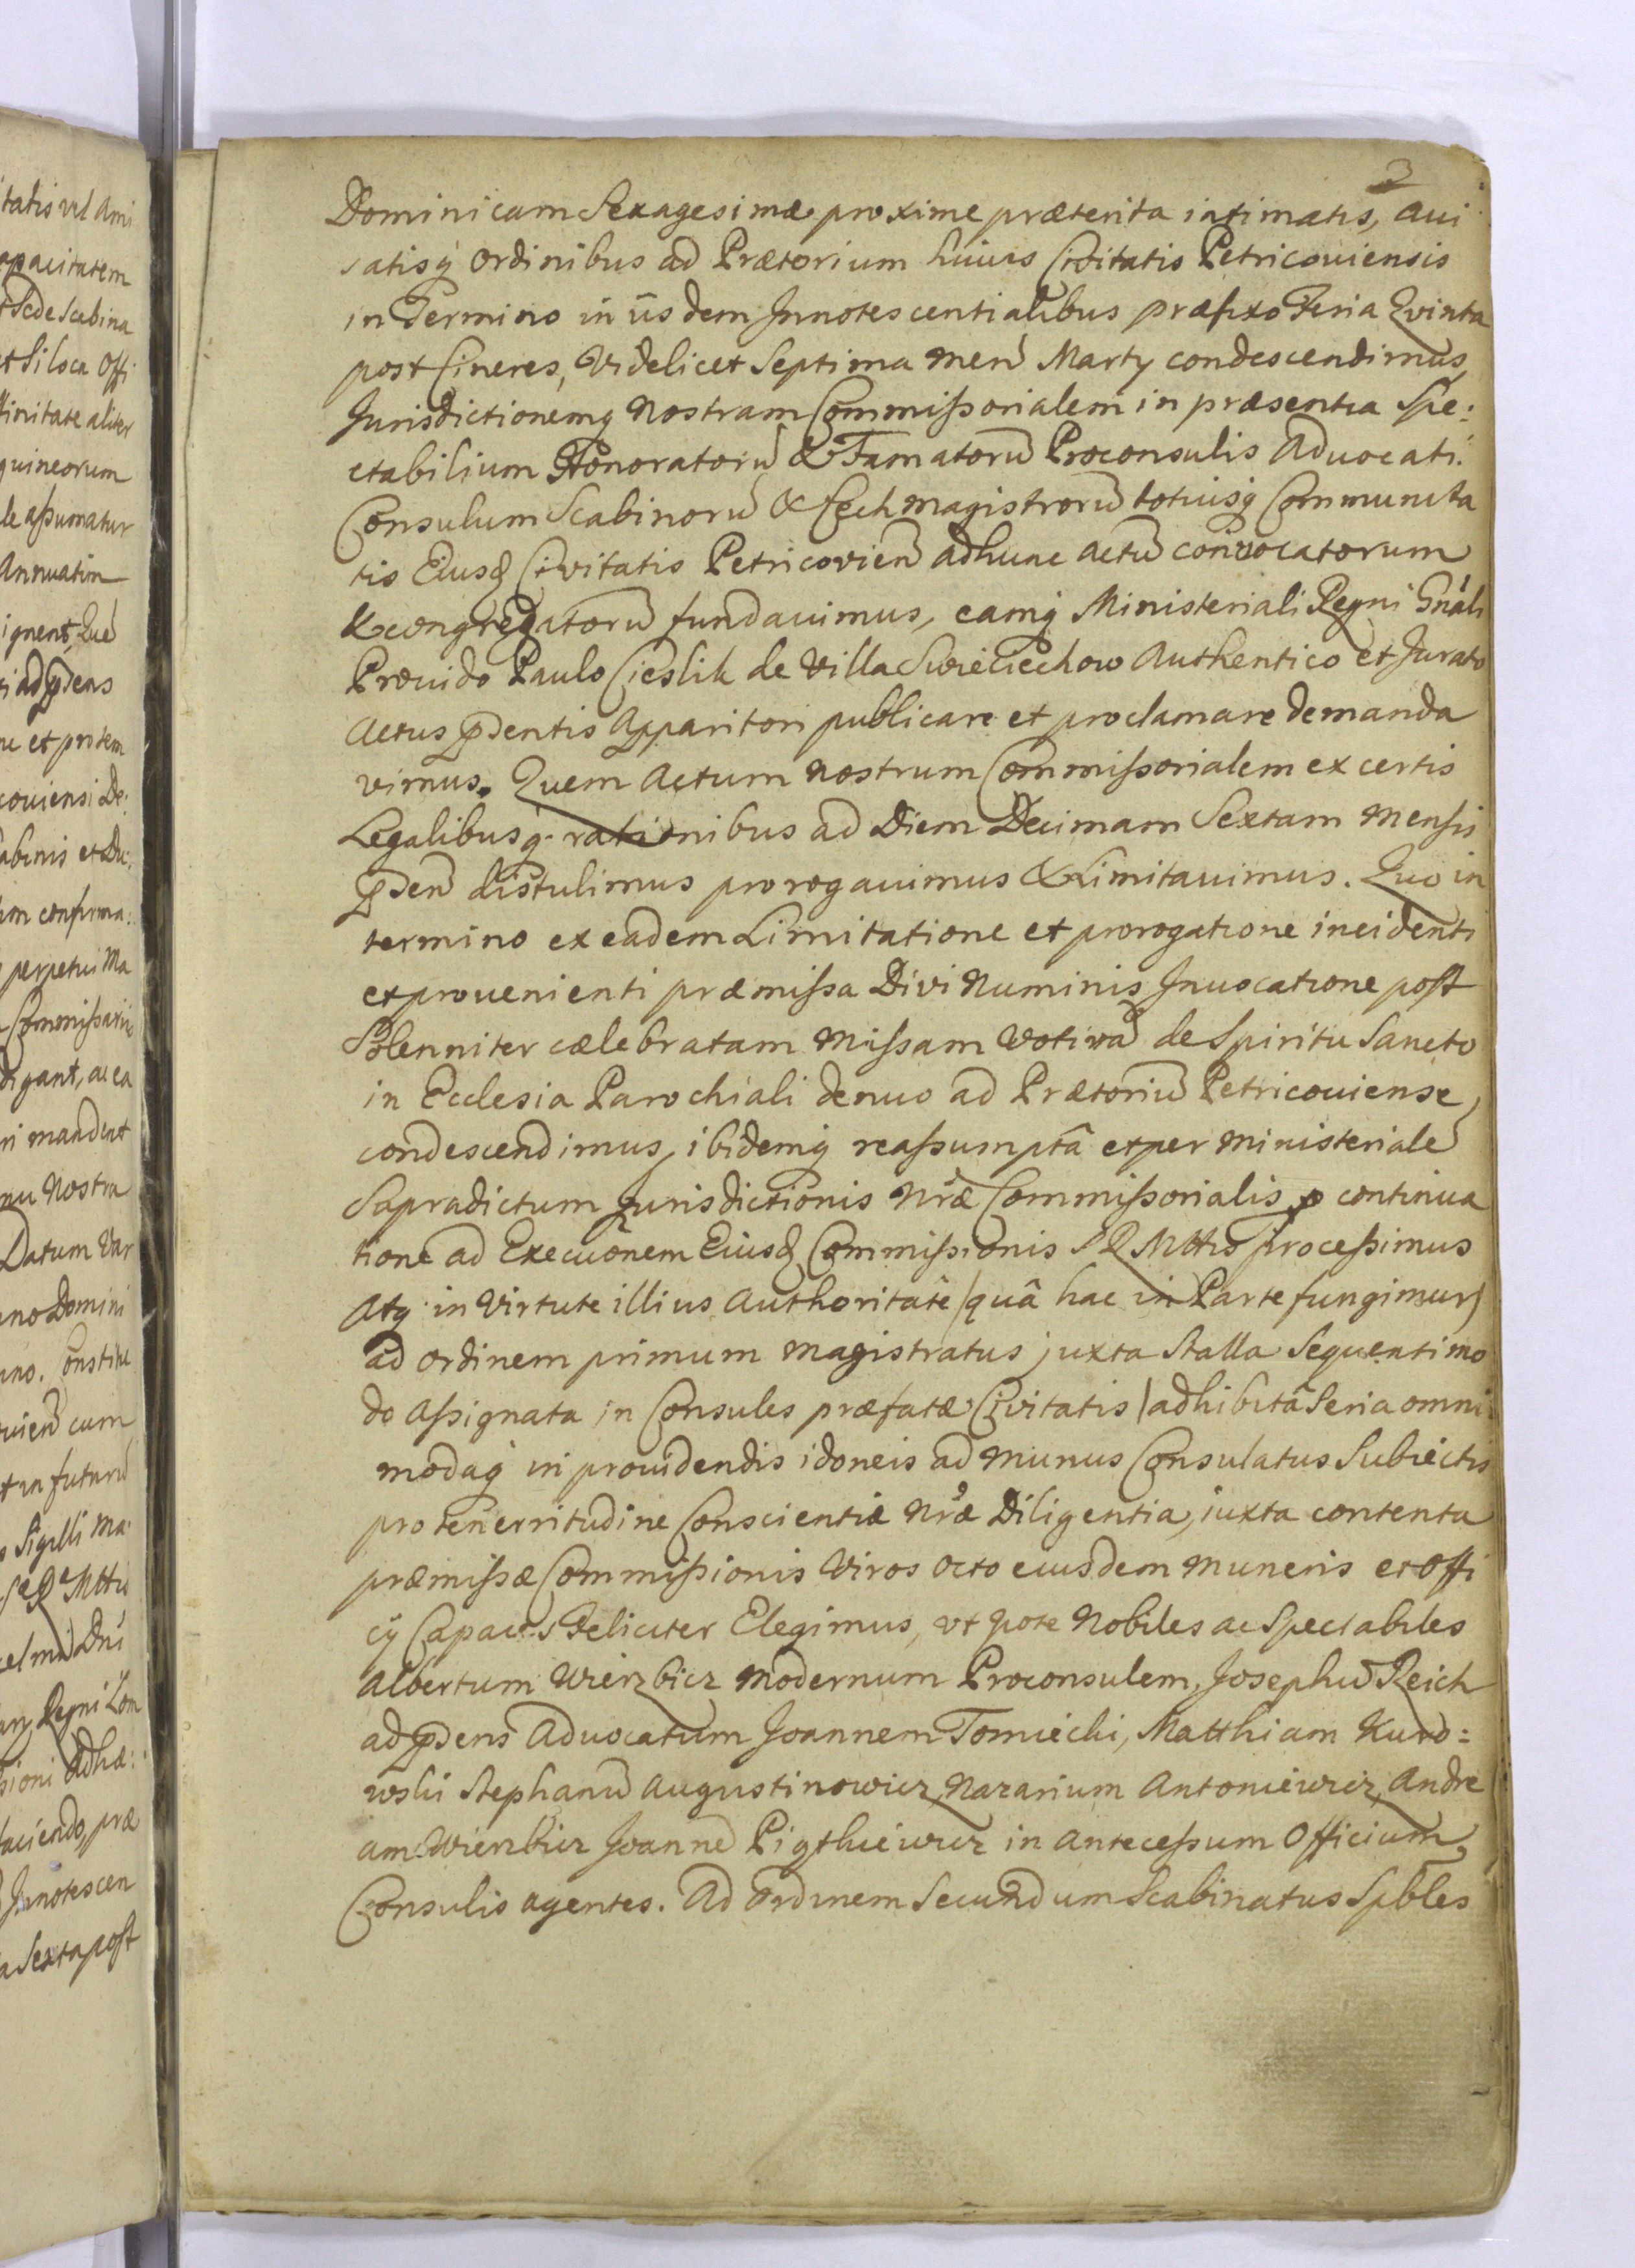 3
Dominicam Sexagesimæ proxime præterita intimatis, aui
satisq́ ordinibus ad Prætorium huius Civitatis Petricouiensis
in Termino in iisdem Innotescentialibus præfixo Feria Qvinta
post Cineres, Videlicet Septima Men̄ Martÿ condescendimus,
Jurisdictionemq́ nostram Commißorialem in præsentia Spe:
ctabilium Honoratorū & Famatorū Proconsulis Aduocati.
Consulum Scabinorū & Cechmagistrorū totiusq́ Communita
tis Eiusd Civitatis Petricovien̄ adhunc Actū convocatorum
& congregatorū fundauimus, eamq́ Ministeriali Regni Gnāli
Prouido Paulo Cieslik de Villa Swieciechow Authentico et Jurato
Actus p̄dentis Apparitori publicare et proclamare demanda
vimus. Quem Actum nostrum Commißorialem ex certis
Legalibusq́ rationibus ad Diem Decimam Sextam Mensis
p̄den̄ distulimus prorogauimus & Limitauimus. Quo in
termino ex eadem Limitatione et prorogatione incidenti
et prouenienti præmißa Divi Numinis Inuocatione post
Solenniter cælebratam Mißam Votivā de Spiritu Sancto
in Ecclesia Parochiali denuo ad Prætoriū Petricouiense
condescendimus, ibidemq́ reaßumptâ et per Ministerialē
Supradictum Jurisdictionis Nræ Commißorialis p continua
tione ad Execuōnem Eiusd Commißionis S R Mttis proceßimus
Atq́ in Virtute illius Authoritate (quâ hac in Parte fungimur)
ad ordinem primum Magistratus juxta Stalla Sequenti mo
do Aßignata in Consules præfatæ Civitatis (adhibitâ Seria omni
modaq́ in prouidendis idoneis ad Munus Consulatus Subiectis
pro tenerritudine Conscientiæ Nræ Diligentia, iuxta contenta
præmißæ Commißionis Viros Octo eiusdem Muneris et Offi
cÿ Capaces Feliciter Elegimus, vt pote Nobiles ac Spectabiles
Albertum Wierzbicz Modernum Proconsulem, Josephū Reich
ad p̄dens Aduocatum Joannem Tomiecki, Matthiam Kuro:
wski Stephanū Augustinowicz, Nazarium Antoniewicz, Andre
am Wierzbicz Joannē in Anteceßum Officium
Consulis agentes. Ad Ordinem Secundum Scabinatus Spbles